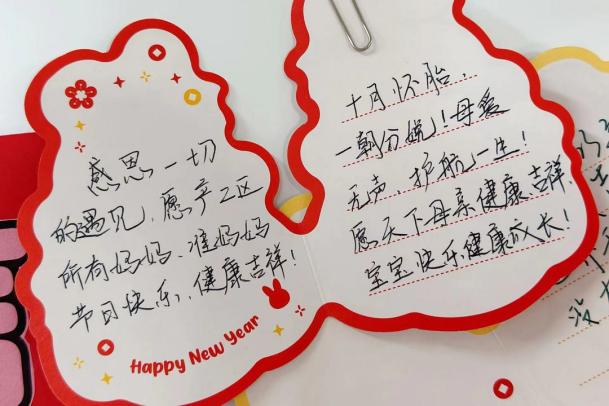 感恩一切
的遇见，愿产二区
所有妈妈、准妈妈
节日快乐，健康吉祥！
Happy New Year
十月怀胎，
一朝分娩！母爱
无声，护航一生！
愿天下母亲健康吉祥，
宝宝快乐健康成长！